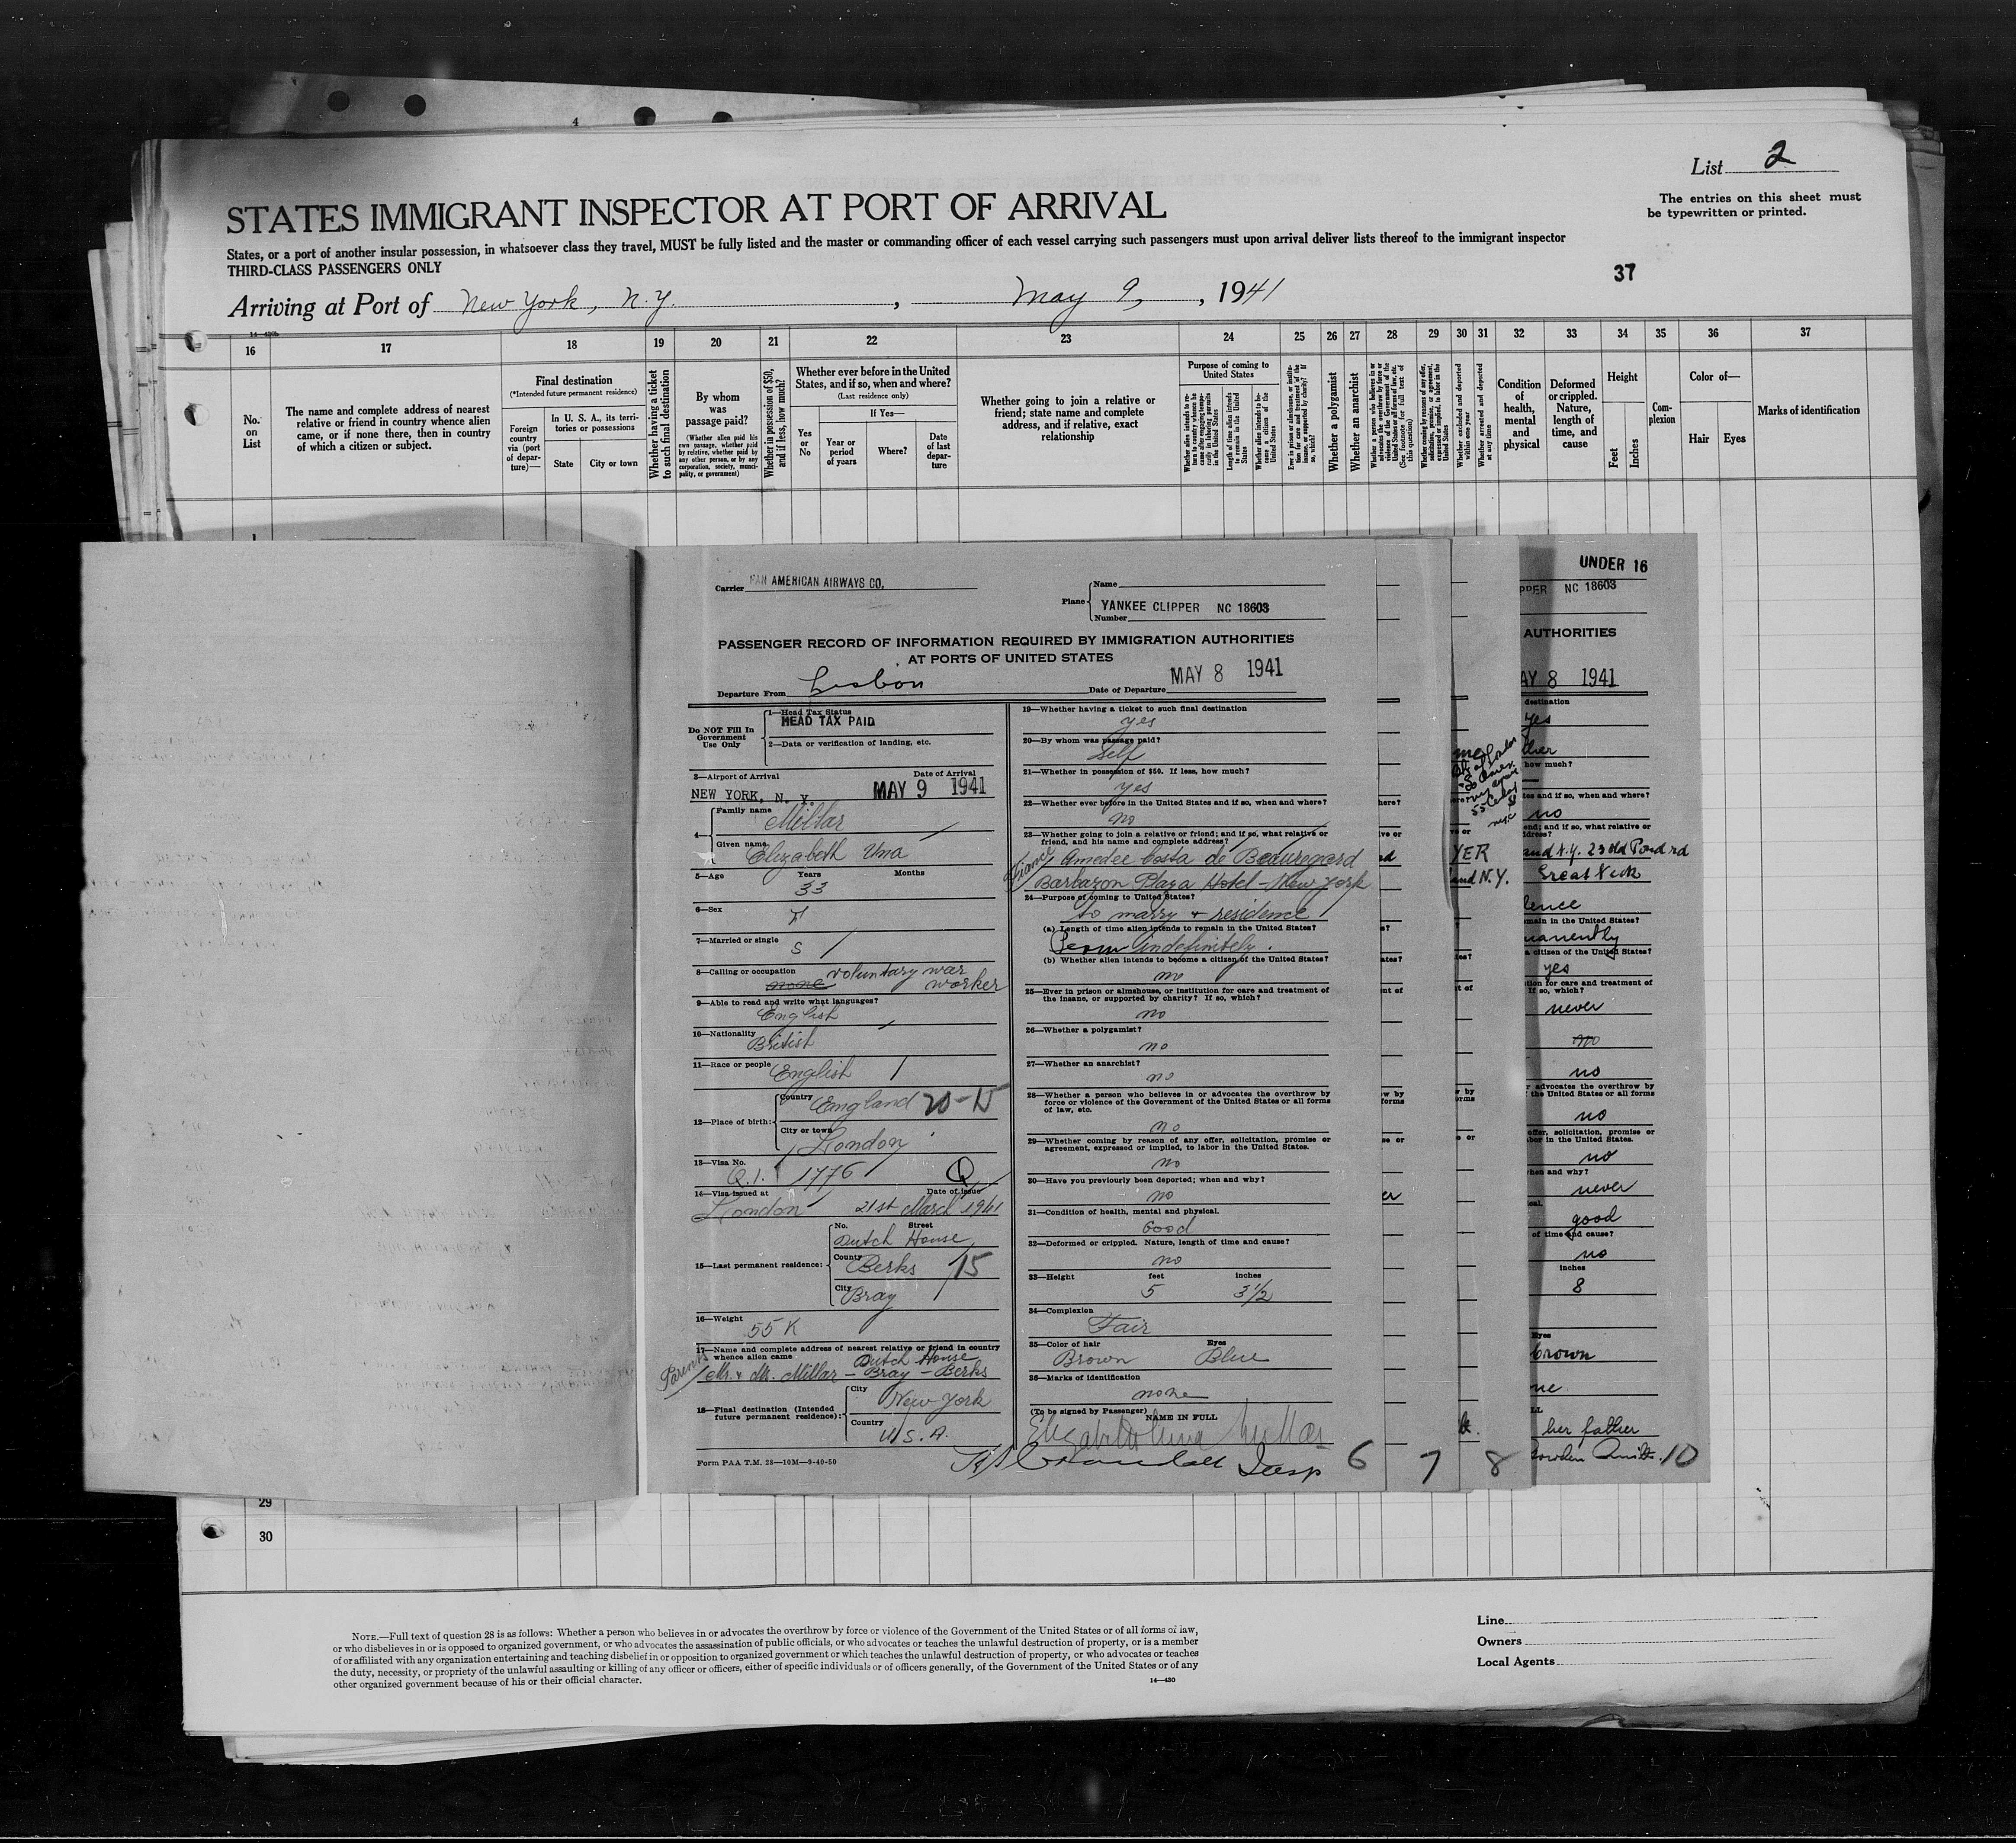 4
List 2
The entries on this sheet must
be typewritten or printed.
STATES IMMIGRANT INSPECTOR AT PORT OF ARRIVAL
States, or a port of another insular possession, in whatsoever class they travel, MUST be fully listed and the master or commanding officer of each vessel carrying such passengers must upon arrival deliver lists thereof to the immigrant inspector
THIRD-CLASS PASSENGERS ONLY
37
Arriving at Port of New York, N.Y. , May 9, , 1941
16 17 18 19 20 21 22 23 24 25 26 27 28 29 30 31 32 33 34 35 36 37
No.
on
List
The name and complete address of nearest
relative or friend in country whence alien
came, or if none there, then in country
of which a citizen or subject.
Final destination
(*Intended future permanent residence)
Foreign
country
via (port
of depar-
ture)—
In U. S. A., its terri-
tories or possessions
State
City or town
Whether having a ticket
to such final destination
By whom
was
passage paid?
(Whether alien paid his
own passage, whether paid
by relative, whether paid by
any other person, or by any
corporation, society, munici-
pality, or government)
Whether in possession of $50,
and if less, how much?
Whether ever before in the United
States, and if so, when and where?
(Last residence only)
Yes
or
No
If Yes—
Year or
period
of years
Where?
Date
of last
depar-
ture
Whether going to join a relative or
friend; state name and complete
address, and if relative, exact
relationship
Purpose of coming to
United States
Whether alien intends to re-
turn to country whence he
came after engaging tempo-
rarily in labor pursuits
in the United States
Length of time alien intends
to remain in the United
States
Whether alien intends to be-
come a citizen of the
United States
Ever in prison or almshouse, or institu-
tion for care and treatment of the
insane, or supported by charity? If
so, which?
Whether a polygamist
Whether an anarchist
Whether a person who believes in or
advocates the overthrow by force or
violence of the Government of the
United States or all forms of law, etc.
(See footnote for full text of
this question)
Whether coming by reason of any offer,
solicitation, promise, or agreement,
expressed or implied, to labor in the
United States
Whether excluded and deported
within one year
Whether arrested and deported
at any time
Condition
of
health,
mental
and
physical
Deformed
or crippled.
Nature,
length of
time, and
cause
Height
Feet
Inches
Com-
plexion
Color of—
Hair
Eyes
Marks of identification
Carrier PAN AMERICAN AIRWAYS CO.
Name
Plane
YANKEE CLIPPER NC 18603
Number
PASSENGER RECORD OF INFORMATION REQUIRED BY IMMIGRATION AUTHORITIES
AT PORTS OF UNITED STATES
Departure From Lisbon Date of Departure MAY 8 1941
Do NOT Fill In
Government
Use Only
1—Head Tax Status
HEAD TAX PAID
2—Data or verification of landing, etc.
3—Airport of Arrival Date of Arrival
NEW YORK, N. Y. MAY 9 1941
4—
Family name
Millar
Given name
Elizabeth Una
5—Age Years Months
33
6—Sex
F
7—Married or single
S
8—Calling or occupation voluntary war
none worker
9—Able to read and write what languages?
English
10—Nationality
British
11—Race or people
English
12—Place of birth:
Country
England 20-15
City or town
London
13—Visa No.
Q.I. 1776 Q
14—Visa issued at Date of issue
London 21st March 1941
15—Last permanent residence:
No. Street
Dutch House
County
Berks 15
City
Bray
16—Weight
55 K
17—Name and complete address of nearest relative or friend in country
whence alien came Dutch House
Parents Mr. & Mrs. Millar – Bray – Berks
18—Final destination (Intended
future permanent residence):
City
New York
Country
U.S.A.
Form PAA T.M. 28—10M—9-40-50
19—Whether having a ticket to such final destination
yes
20—By whom was passage paid?
Self
21—Whether in possession of $50. If less, how much?
yes
22—Whether ever before in the United States and if so, when and where?
no
23—Whether going to join a relative or friend; and if so, what relative or
friend, and his name and complete address?
Fiancé Amedee Costa de Beauregard
Barbazon Plaza Hotel – New York
24—Purpose of coming to United States?
to marry + residence
(a) Length of time alien intends to remain in the United States?
Perm indefinitely.
(b) Whether alien intends to become a citizen of the United States?
no
25—Ever in prison or almshouse, or institution for care and treatment of
the insane, or supported by charity? If so, which?
no
26—Whether a polygamist?
no
27—Whether an anarchist?
no
28—Whether a person who believes in or advocates the overthrow by
force or violence of the Government of the United States or all forms
of law, etc.
no
29—Whether coming by reason of any offer, solicitation, promise or
agreement, expressed or implied, to labor in the United States.
no
30—Have you previously been deported; when and why?
no
31—Condition of health, mental and physical.
Good
32—Deformed or crippled. Nature, length of time and cause?
no
33—Height feet inches
5 3 1/2
34—Complexion
Fair
35—Color of hair Eyes
Brown Blue
36—Marks of identification
none
(To be signed by Passenger)
NAME IN FULL
Elizabeth Una Millar
Insp 6
7
8
YER
and N.Y.
UNDER 16
PPER NC 18603
AUTHORITIES
AY 8 1941
destination
yes
ther
how much?
tes and if so, when and where?
no
end; and if so, what relative or
dress?
and N.Y. 23 Old Pond rd
Great Neck
dence
main in the United States?
manently
a citizen of the United States?
yes
tion for care and treatment of
If so, which?
never
no
no
r advocates the overthrow by
the United States or all forms
no
offer, solicitation, promise or
bor in the United States.
no
hen and why?
never
ical.
good
of time and cause?
no
inches
8
Eyes
brown
ne
LL
her father
10
29
30
NOTE.—Full text of question 28 is as follows: Whether a person who believes in or advocates the overthrow by force or violence of the Government of the United States or of all forms of law,
or who disbelieves in or is opposed to organized government, or who advocates the assassination of public officials, or who advocates or teaches the unlawful destruction of property, or is a member
of or affiliated with any organization entertaining and teaching disbelief in or opposition to organized government or which teaches the unlawful destruction of property, or who advocates or teaches
the duty, necessity, or propriety of the unlawful assaulting or killing of any officer or officers, either of specific individuals or of officers generally, of the Government of the United States or of any
other organized government because of his or their official character.
14—430
Line
Owners
Local Agents